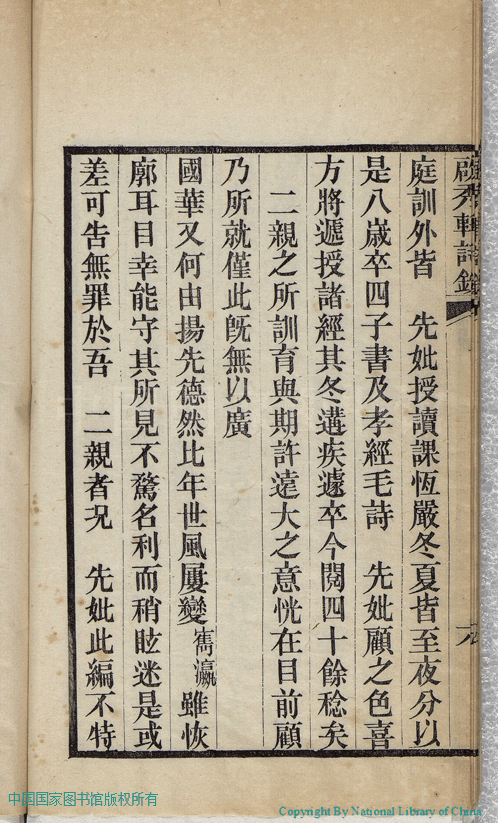 庭訓外皆　先妣授讀課恆嚴冬夏皆至夜分以
是八歲卒四子書及孝經毛詩　先妣顧之色喜
方將遞授諸經其冬遘疾遽卒今閱四十餘稔矣
二親之所訓育與期許遠大之意恍在目前顧
乃所就僅此旣無以廣
國華又何由揚先德然比年世風屢變雋瀛雖恢
廓耳目幸能守其所見不騖名利而稍眩迷是或
差可告無罪於吾　二親者况　先妣此編不特
中国国家图书馆版权所有
Copyright By National Library of China